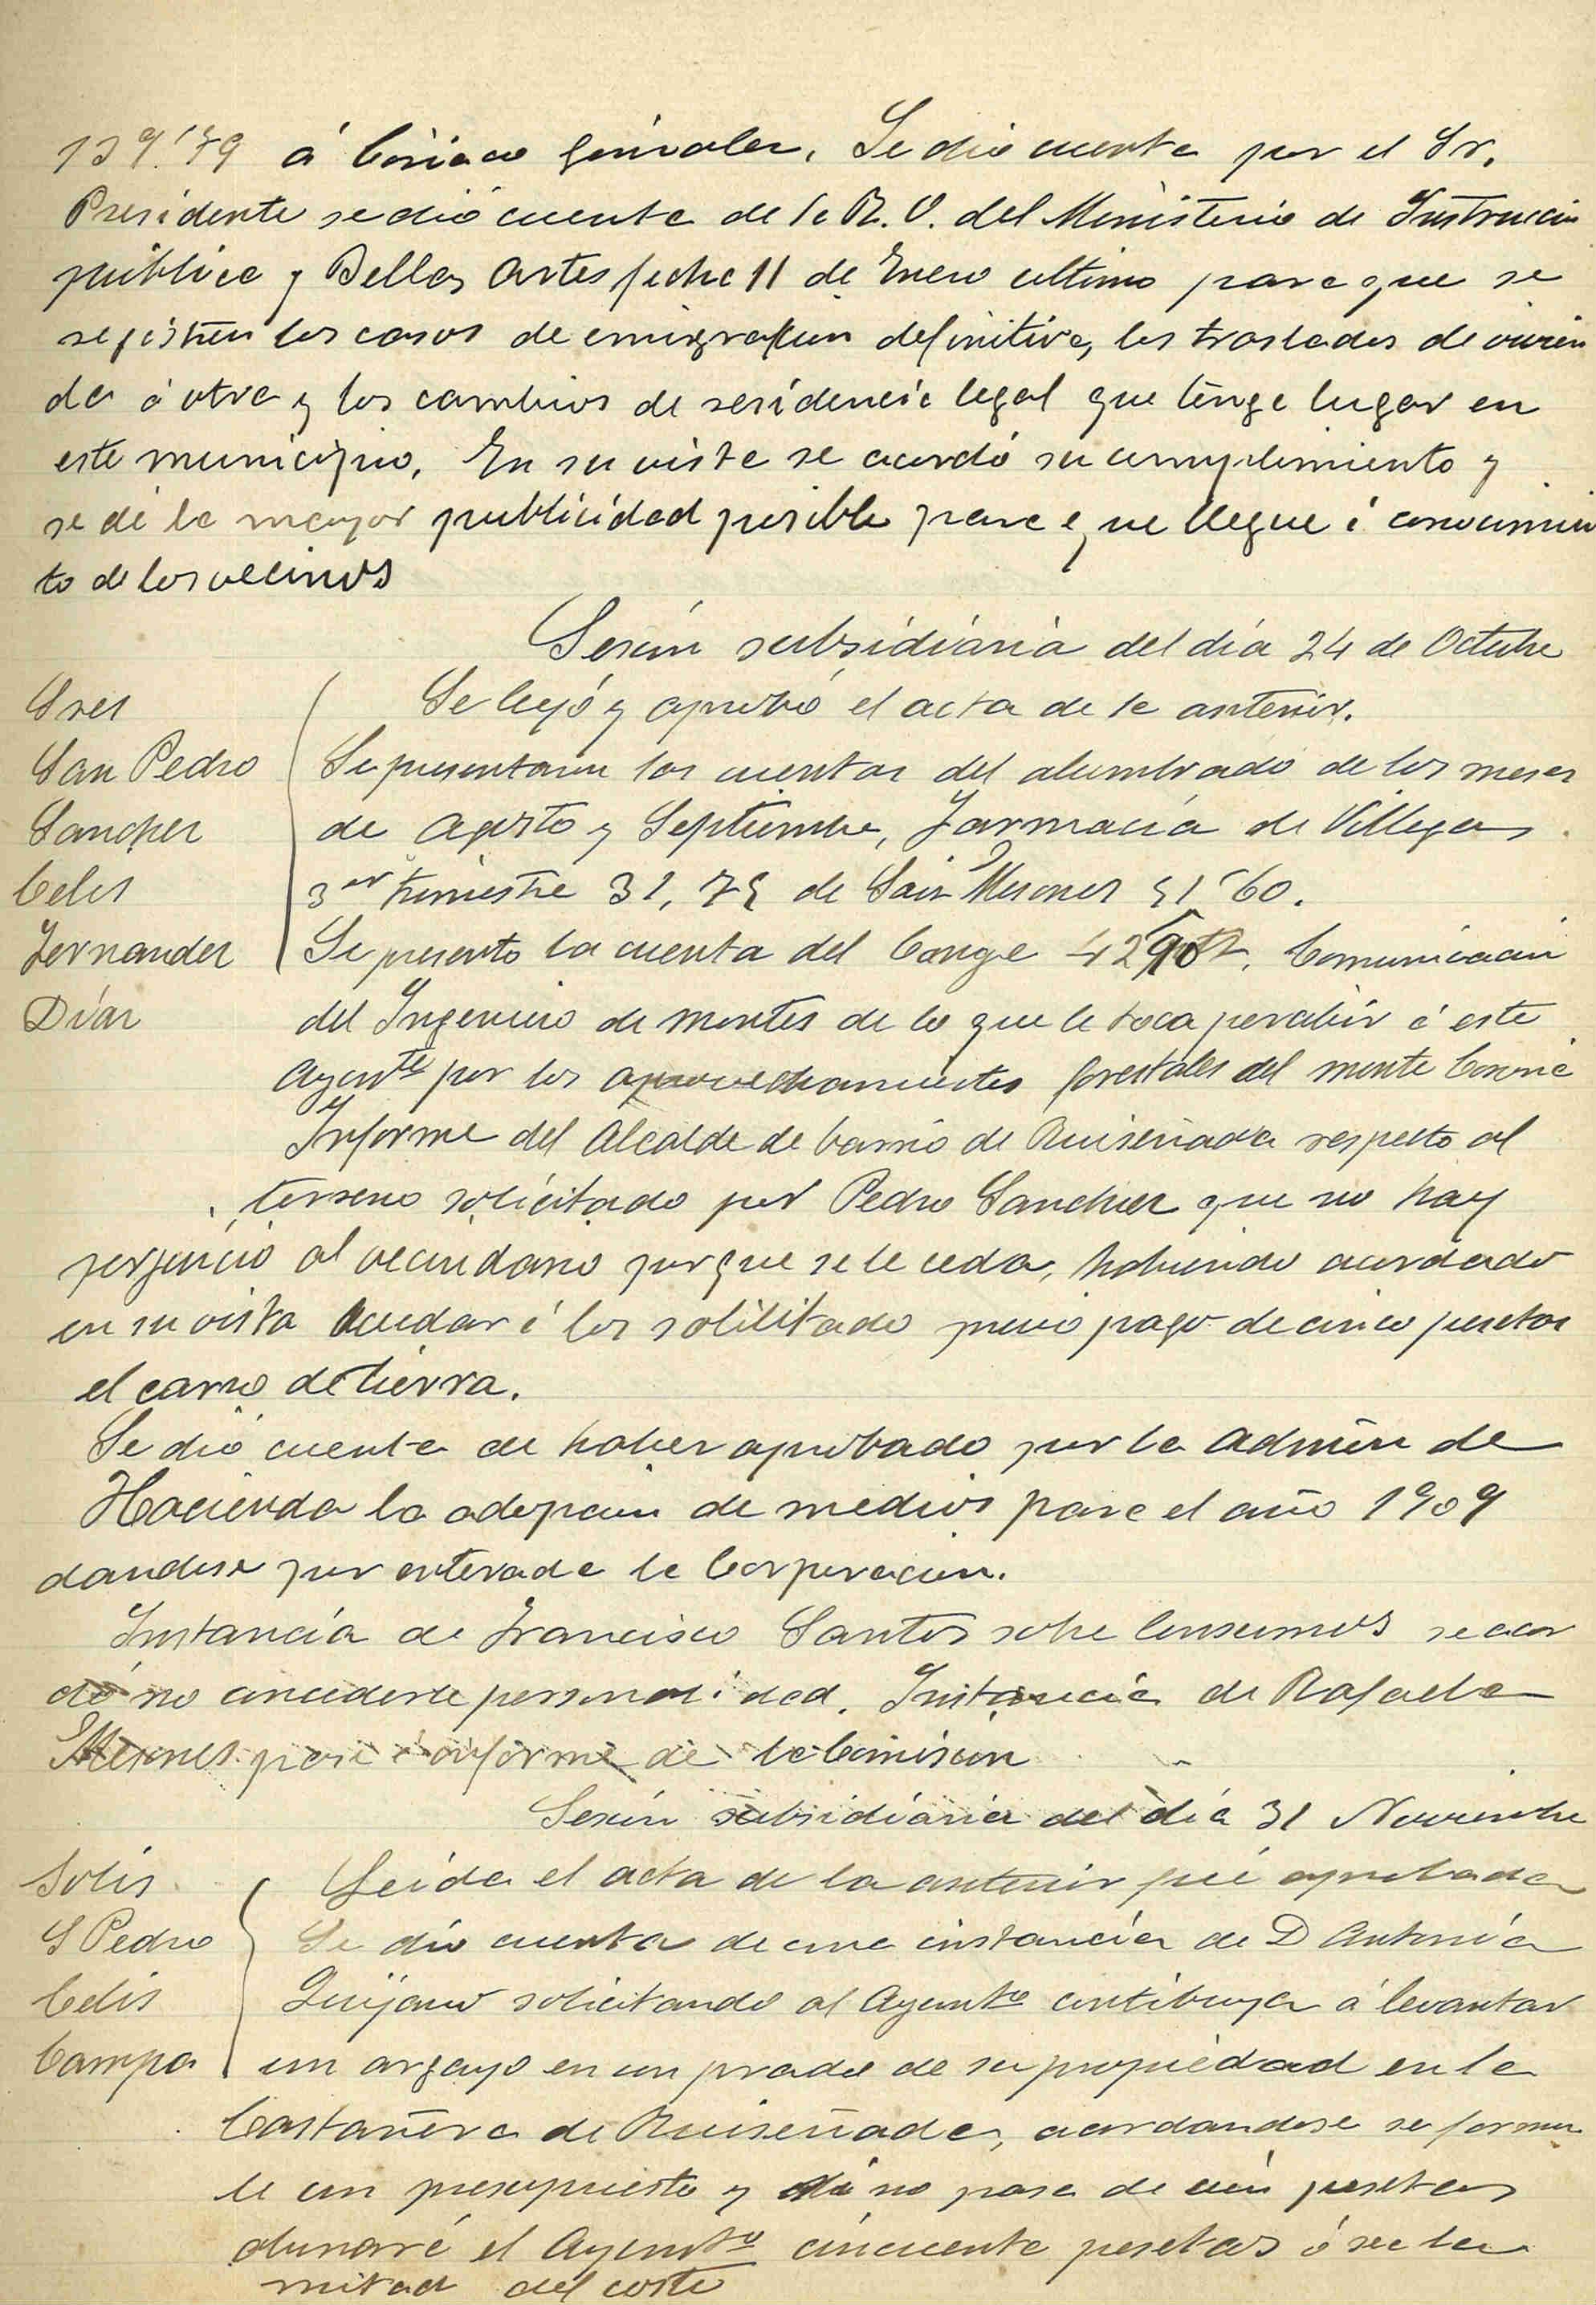 139.'79 á Ciriaco González. Se dio cuenta por el Sr.
Presidente se dió cuenta de la R. O. del Ministerio de Instrucción
pública y Bellas Artes fecha 11 de Enero ultimo para que se
registren los casos de emigración definitiva, los traslados de vivien
da á otra y los cambios de residencia legal que tenga lugar en
este municipio. En su vista se acordó su cumplimiento y
se dé la mayor publicidad posible para que llegue á conocimien
to de los vecinos
Sesión subsidiaria del día 24 de Octubre
Sres
San Pedro
Sanchez
Celis
Fernandez
Díaz
Se leyó y aprobó el acta de la anterior.
Se presentaron las cuentas del alumbrado de los meses
de Agosto y Septiembre, Farmacia de Villegas
3er trimestre 31,75 de Sainz Mesones 51'60.
Se presento la cuenta del Conge Comunicación
del Ingeniero de montes de lo que le toca percibir á este
Ayunte por los aprovechamientos forestales del monte Corona
Informe del Alcalde de barrio de Ruiseñada respecto al
terreno solicitado por Pedro Sanchez que no hay
perjuicio al vecindario porque se le ceda, habiendo acordado
en su vista á los solilitado previo pago de cinco pesetas
el carro de tierra.
Se dió cuenta de haber aprobado por la Admón de
Hacienda la adopción de medios para el año 1909
dandose por enterada la Corporación.
Instancia de Francisco Santos sobre Consumos se acor
dó no concederle personalidad. Instancia de Rafaela
Mesones pase á informe de la Comision
Sesión subsidiaria del día 31 Noviembre
Solis
S Pedro
Celis
Campa
Leida el acta de la anterior fué aprobada
Se dio cuenta de una instancia de D Antonia
Quijano solicitando al Ayunto contibuya á levantar
un argayo en un prado de su propiedad en la
Castañera de Ruiseñada, acordandose se formu
le un presupuesto y si no pasa de cien pesetas
abonaré el Ayunto cincuenta pesetas ó sea la
mitad del coste